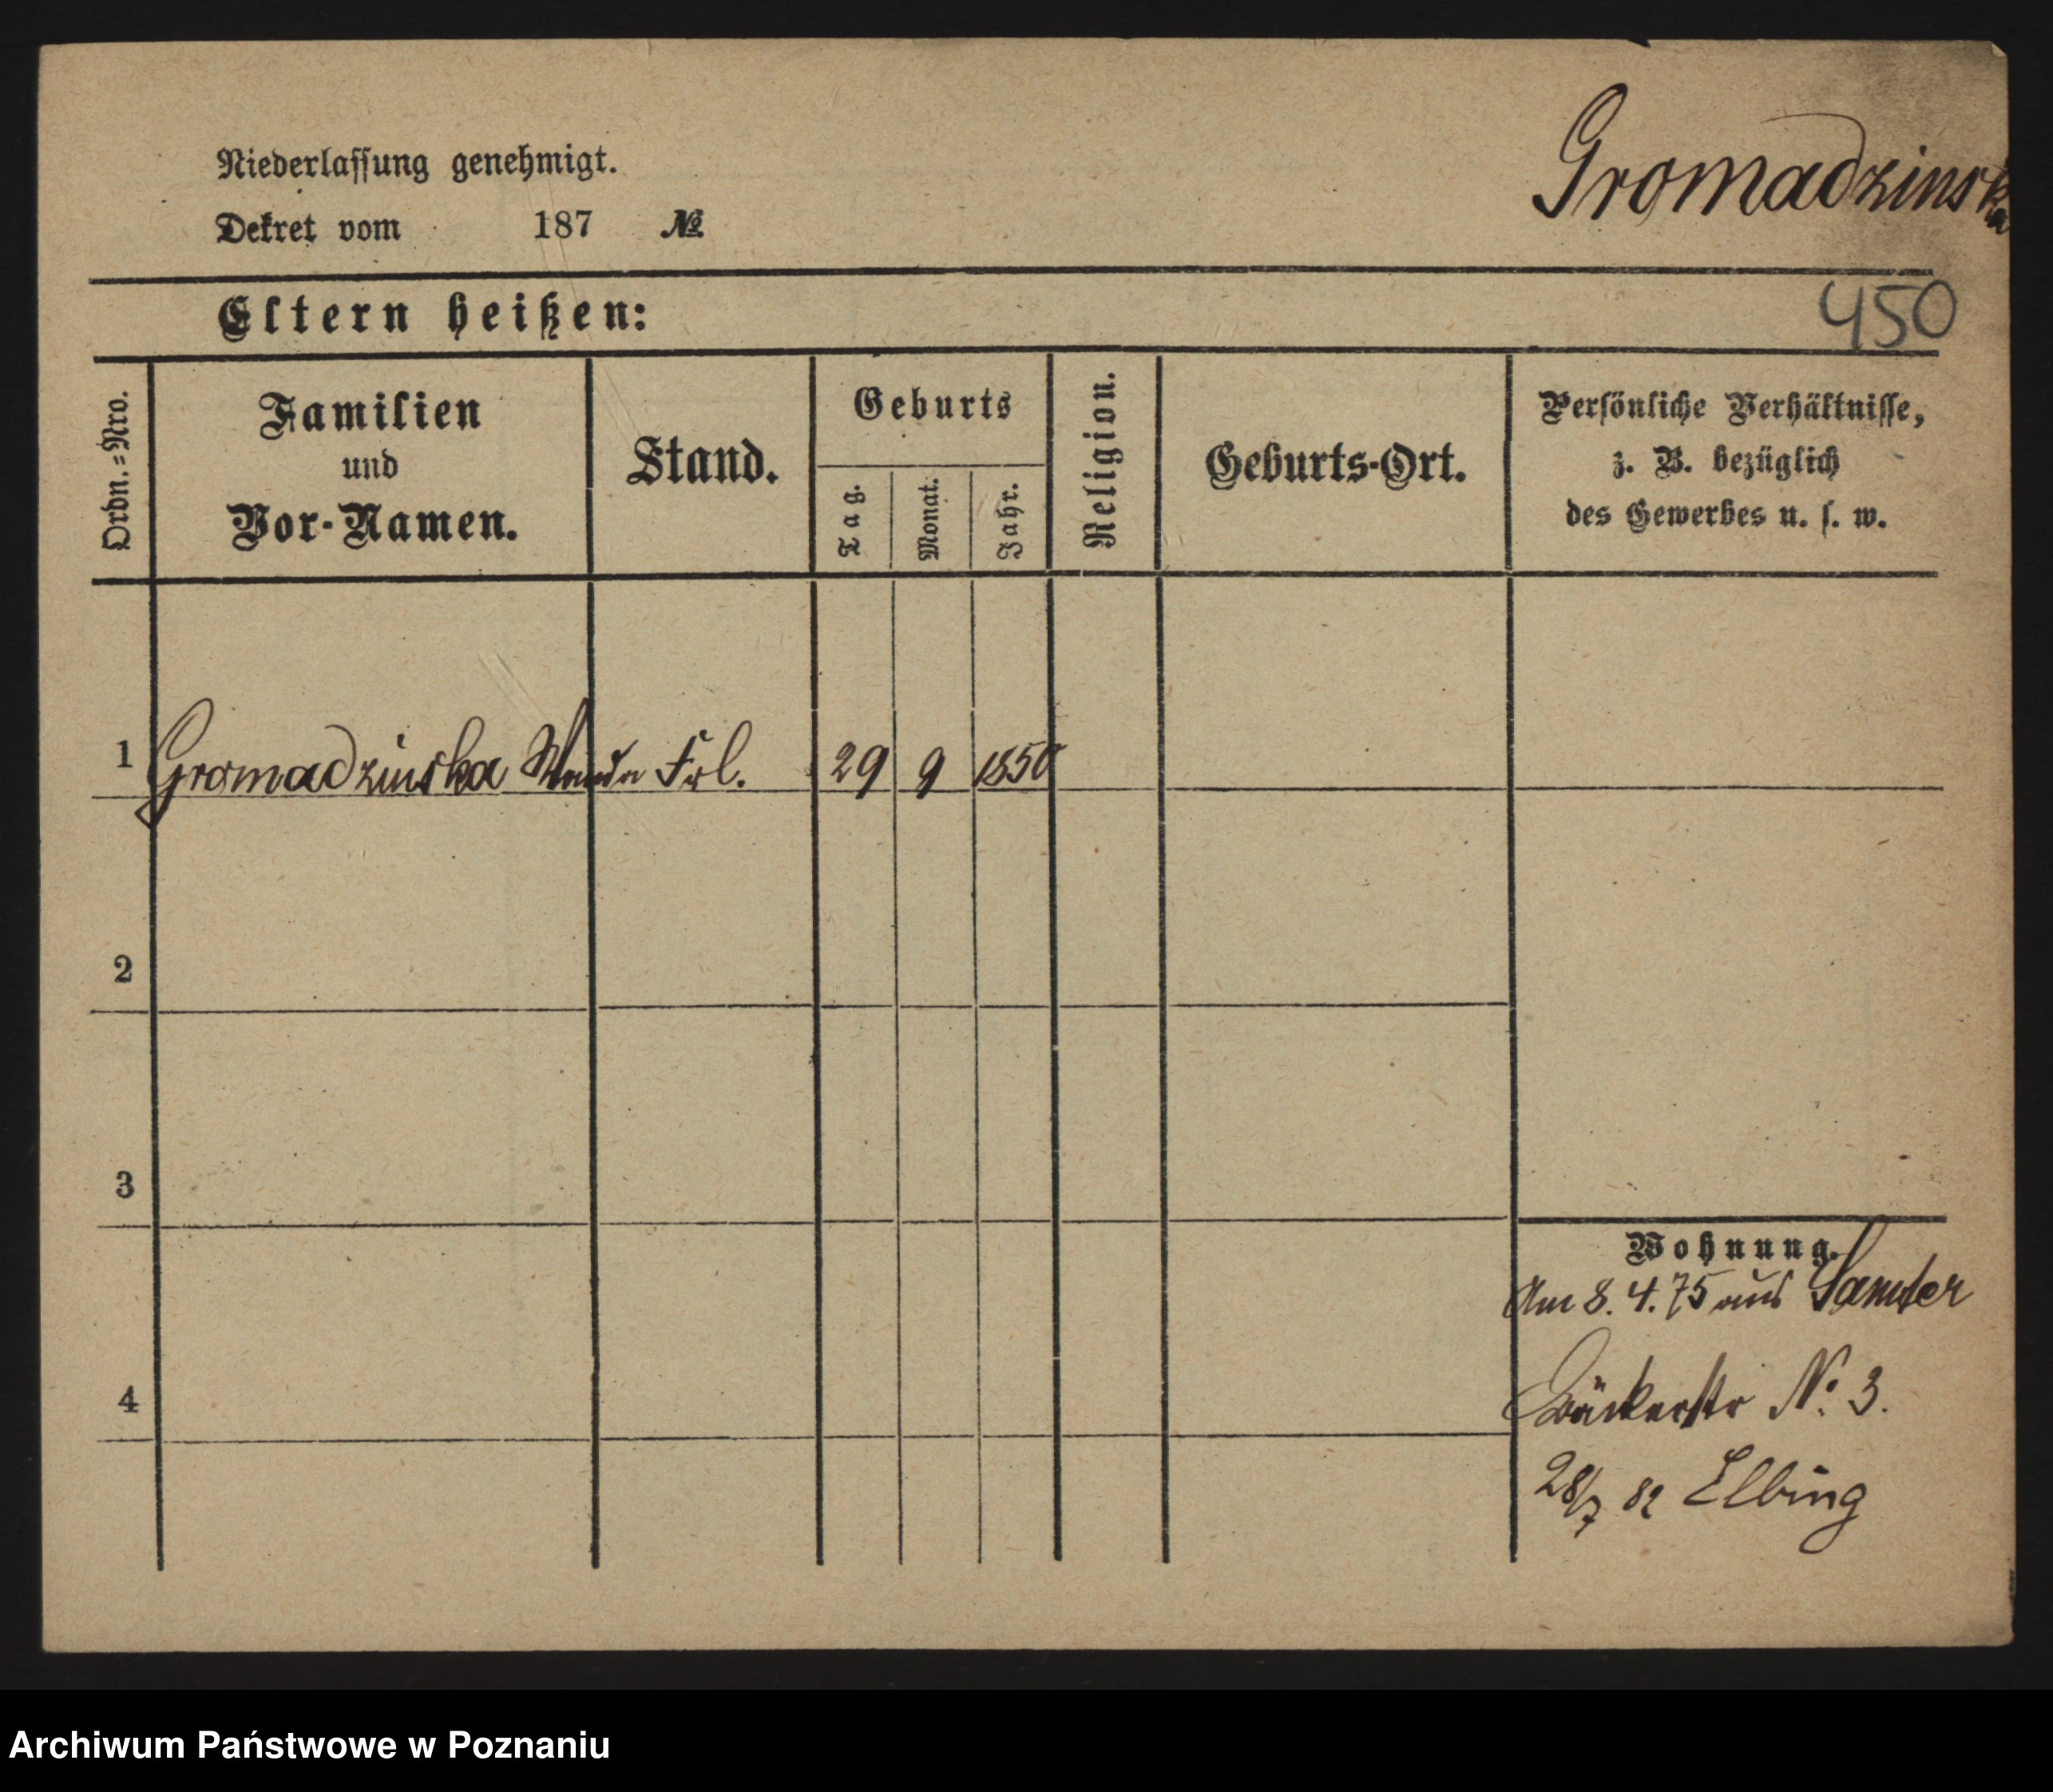 Niederlassung genehmigt.
Dekret vom 187 №
Gromadzinska
Eltern heißen:
450
Ordn.=Nro.
Familien
und
Vor-Namen.
Stand.
Geburts
Tag.
Monat.
Jahr.
Religion.
Geburts-Ort.
Persönliche Verhältnisse,
z. B. bezüglich
des Gewerbes u. s. w.
1 Gromadzinska Wanda Frl. 29 9 1850
2
3
4
Wohnung.
Am 8.4.75 aus Samter
Bäckerstr No. 3.
28/7 82 Elbing
Archiwum Państwowe w Poznaniu